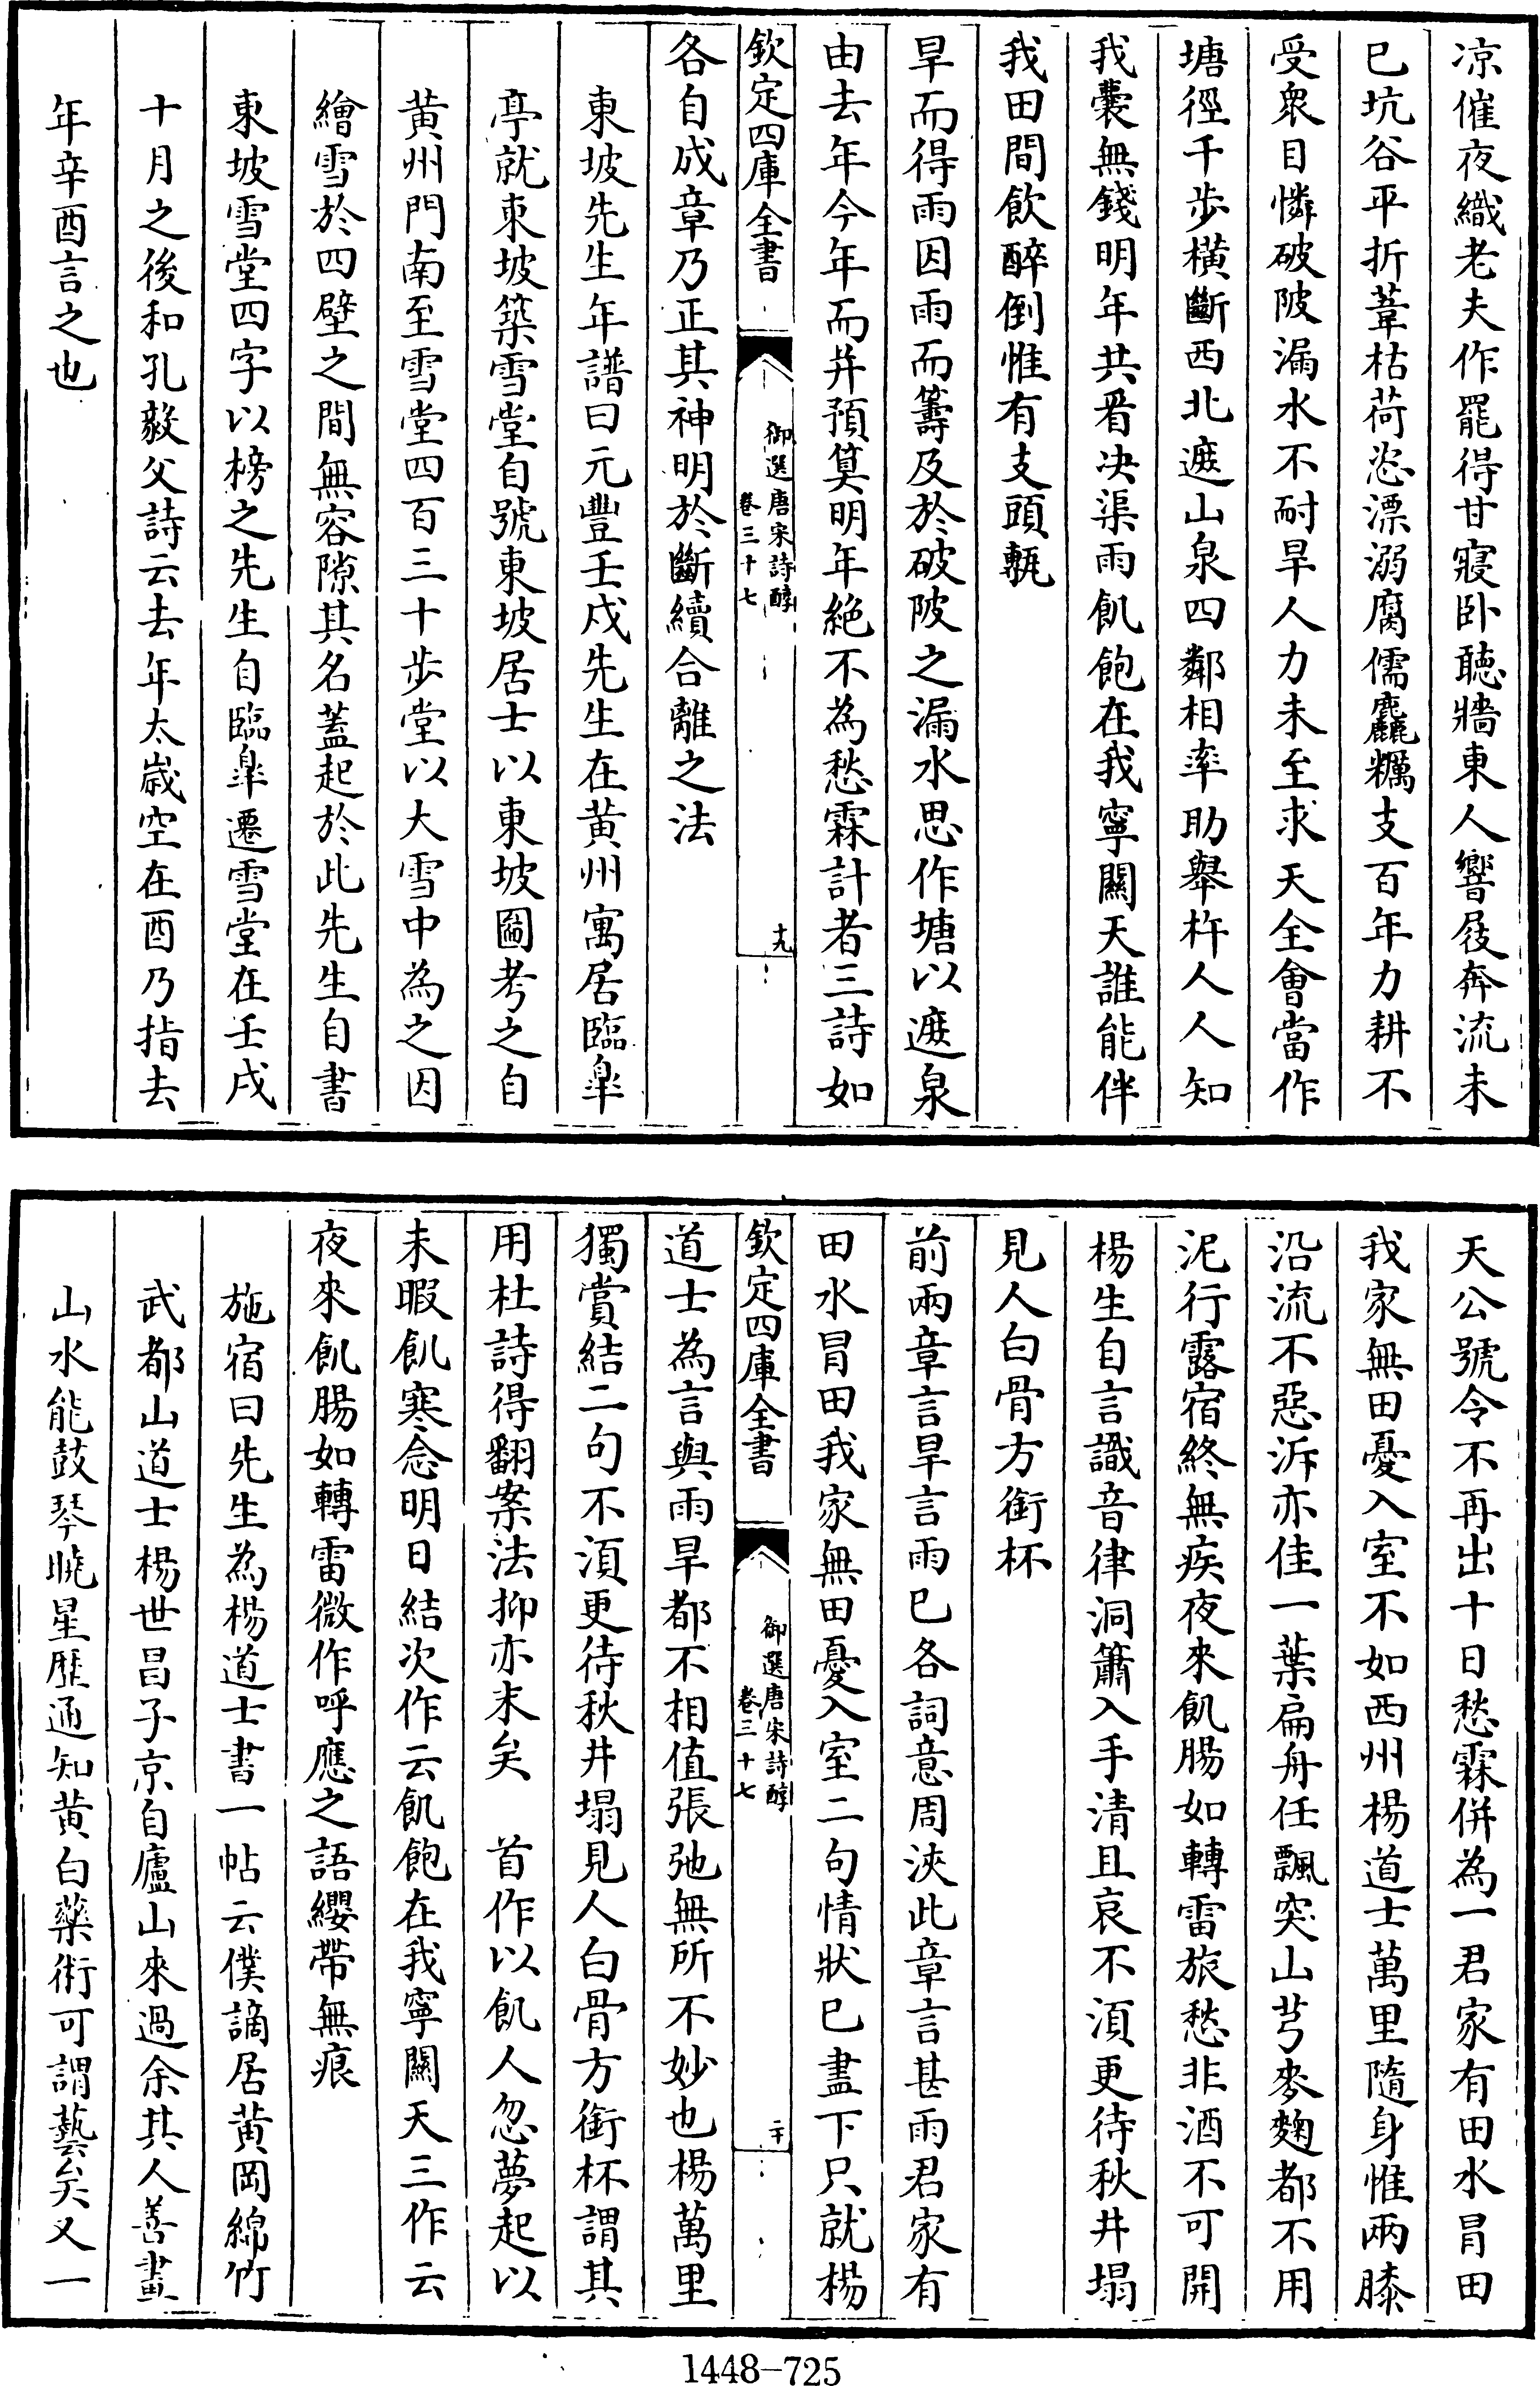 凉催夜織老夫作罷得甘寢卧聽牆東人響屐奔流未
已坑谷平折葦枯荷恣漂溺腐儒麤糲支百年力耕不
受衆目憐破陂漏水不耐旱人力未至求天全會當作
塘徑千步橫斷西北遮山泉四鄰相率助舉杵人人知
我囊無錢明年共㸔决渠雨飢飽在我寧關天誰能伴
我田間飲醉倒惟有支頭甎
旱而得雨因雨而籌及於破陂之漏水思作塘以遮泉
由去年今年而并預算明年絶不為愁霖計者三詩如
欽定四庫全書
御選唐宋詩醇
卷三十七
十九
各自成章乃正其神明於斷續合離之法
東坡先生年譜曰元豐壬戌先生在黄州寓居臨臯
亭就東坡築雪堂自號東坡居士以東坡圖考之自
黄州門南至雪堂四百三十步堂以大雪中為之因
繪雪於四壁之間無容隙其名蓋起於此先生自書
東坡雪堂四字以榜之先生自臨臯遷雪堂在壬戌
十月之後和孔毅父詩云去年太歲空在酉乃指去
年辛酉言之也
天公號令不再出十日愁霖併為一君家有田水冒田
我家無田憂入室不如西州楊道士萬里隨身惟兩膝
沿流不惡泝亦佳一葉扁舟任飄突山芎麥麴都不用
泥行露宿終無疾夜來飢腸如轉雷旅愁非酒不可開
楊生自言識音律洞簫入手清且哀不須更待秋井塌
見人白骨方銜杯
前兩章言旱言雨已各詞意周浹此章言甚雨君家有
田水冒田我家無田憂入室二句情狀已盡下只就楊
欽定四庫全書
御選唐宋詩醇
卷三十七
二十
道士為言與雨旱都不相值張弛無所不妙也楊萬里
獨賞結二句不須更待秋井塌見人白骨方銜杯謂其
用杜詩得翻案法抑亦末矣　首作以飢人忽夢起以
未暇飢寒念明日結次作云飢飽在我寧關天三作云
夜來飢腸如轉雷微作呼應之語纓帶無痕
施宿曰先生為楊道士書一帖云僕謫居黄岡綿竹
武都山道士楊世昌子京自廬山來過余其人善畫
山水能鼓琴曉星歴通知黄白藥術可謂藝矣又一
1448-725